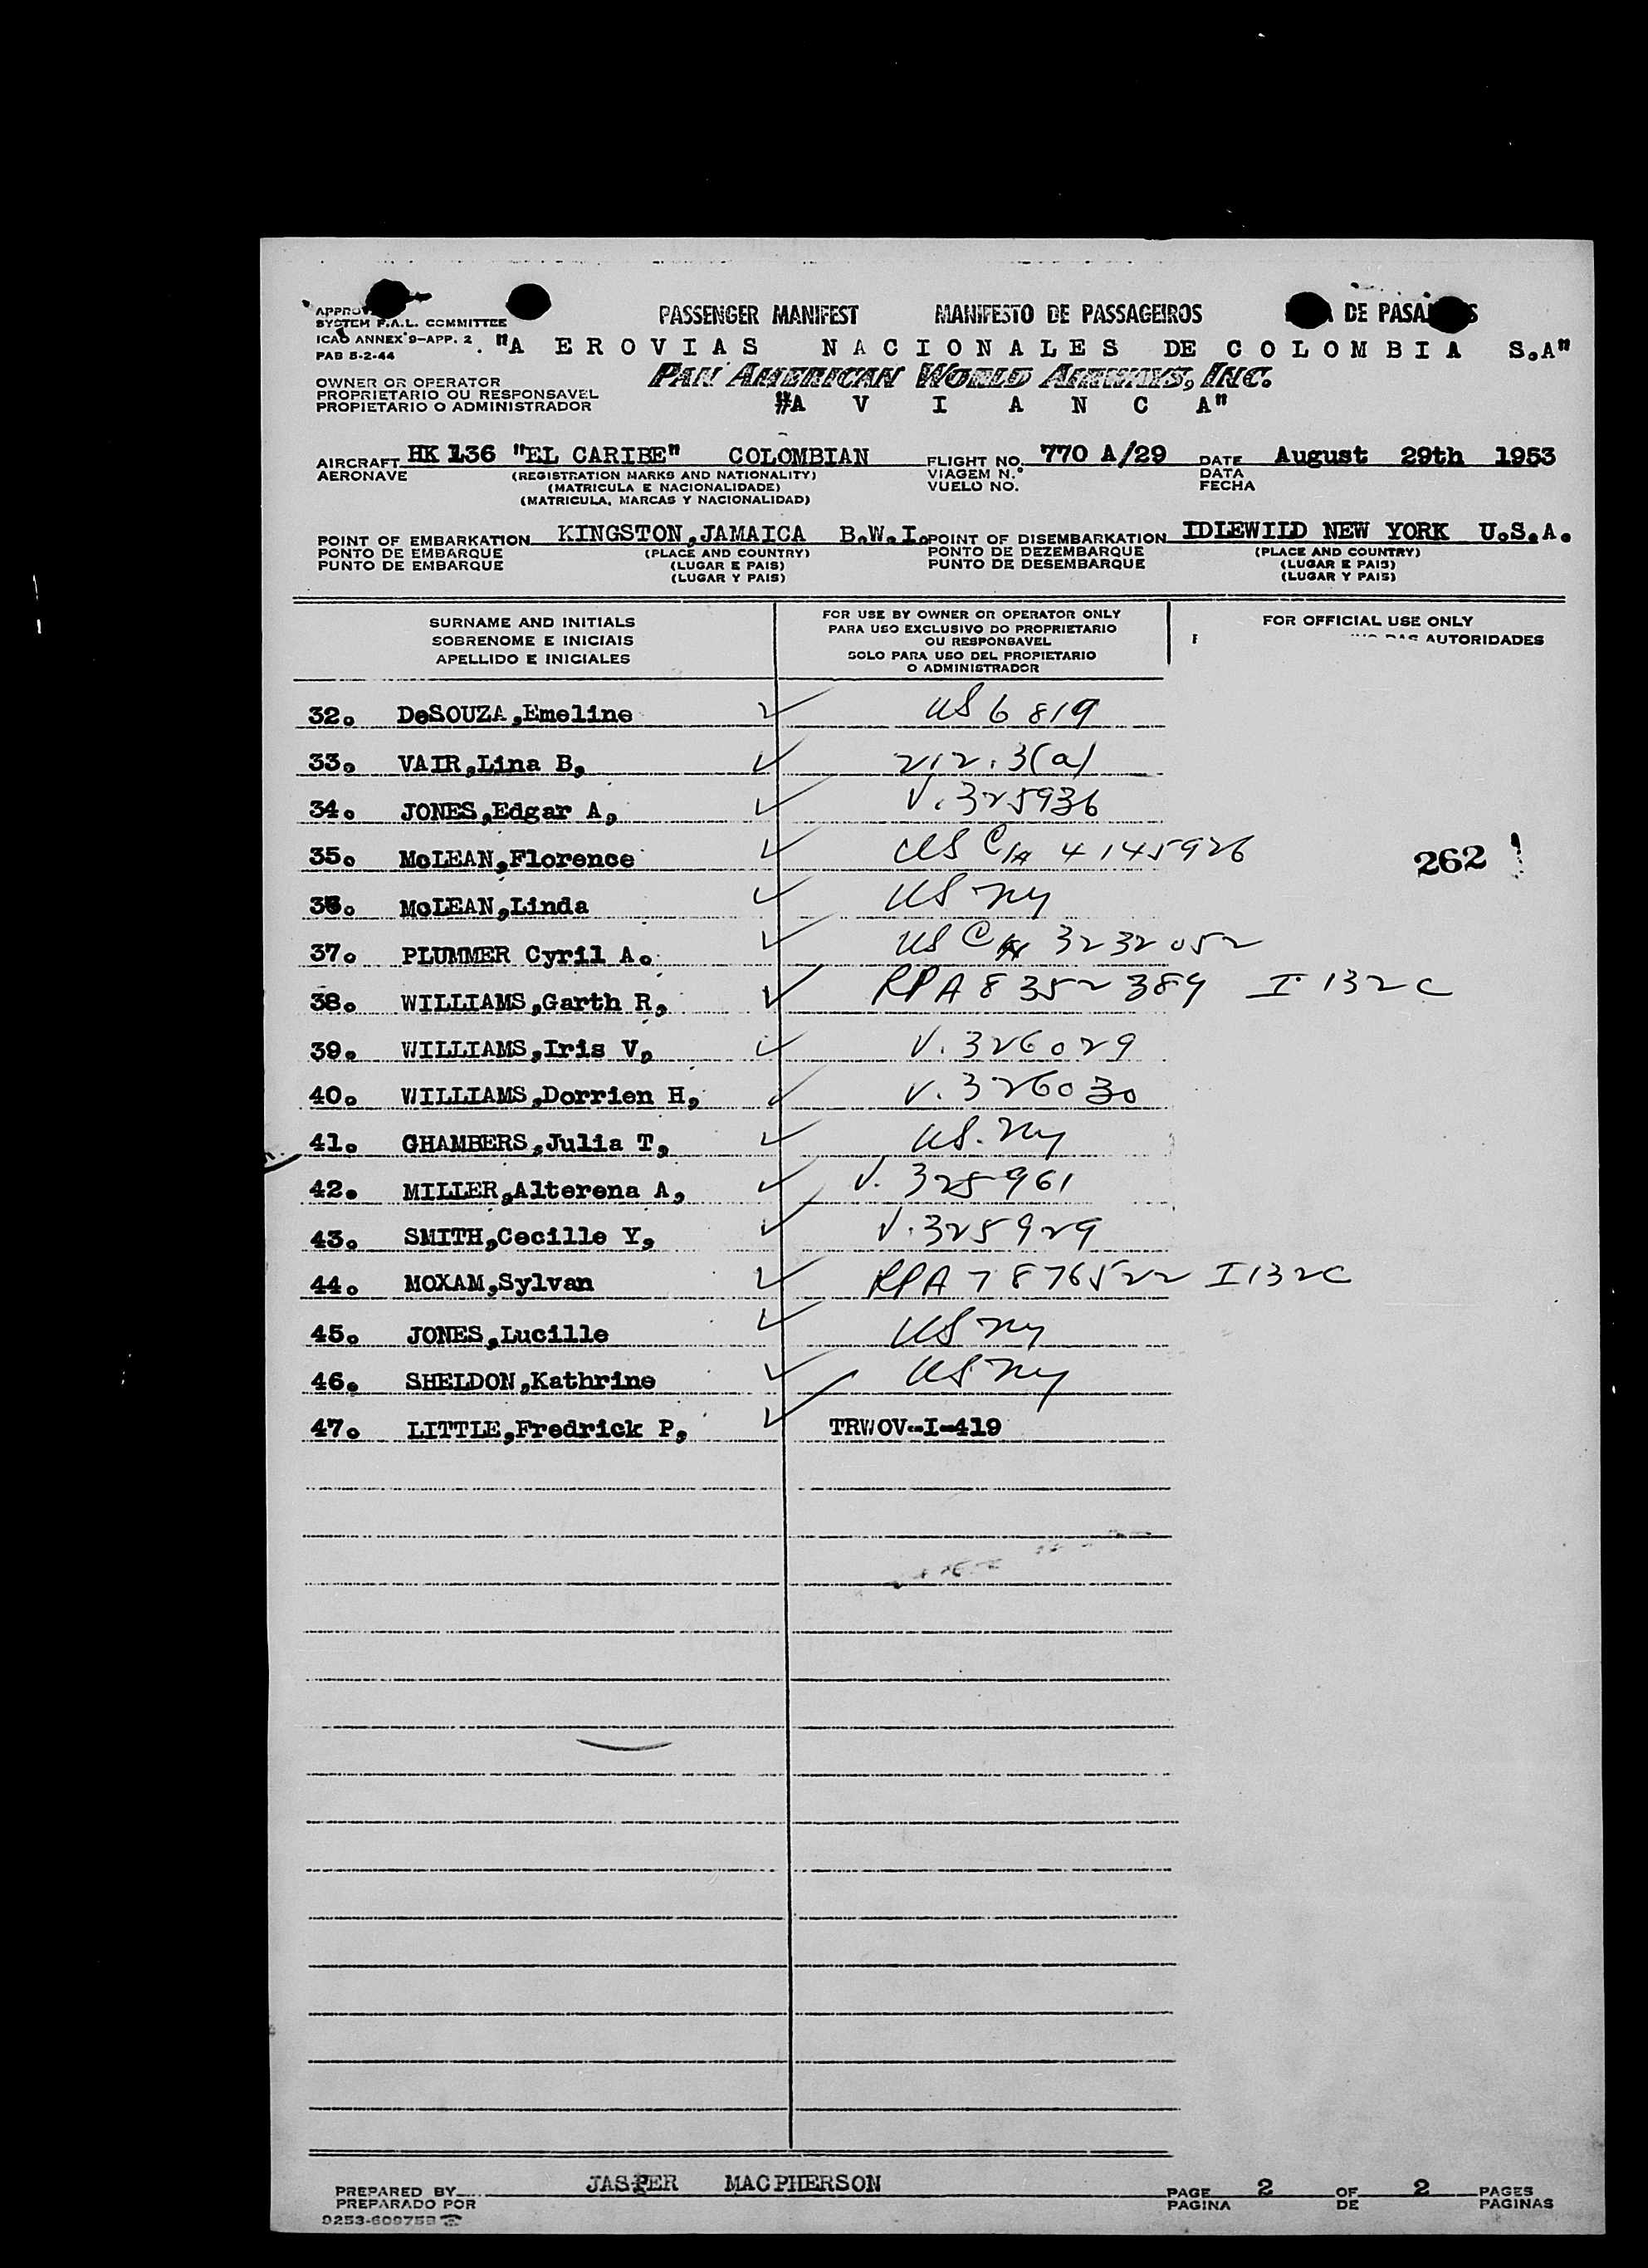 PASSENGER MANIFEST MANIFESTO DE PASSAGEIROS DE
SYSTEM F.A.L. COMMITTEE
ICAO ANNEX 9-APP. 2
PAB 5-2-44
"A EROVIAS NACIONALES DE COLOMBIA S.A"
OWNER OR OPERATOR
PROPRIETARIO OU RESPONSAVEL
PROPIETARIO O ADMINISTRADOR
PAN AMERICAN WORLD AIRWAYS, INC.
"A V I A N C A"
AIRCRAFT HK 136 "EL CARIBE" COLOMBIAN FLIGHT NO. 770 A/29 DATE August 29th 1953
AERONAVE (REGISTRATION MARKS AND NATIONALITY) VIAGEM N.° DATA
(MATRICULA E NACIONALIDADE) VUELO NO. FECHA
(MATRICULA, MARCAS Y NACIONALIDAD)
POINT OF EMBARKATION KINGSTON,JAMAICA B.W.I. POINT OF DISEMBARKATION IDLEWILD NEW YORK U.S.A.
PONTO DE EMBARQUE (PLACE AND COUNTRY) PONTO DE DEZEMBARQUE (PLACE AND COUNTRY)
PUNTO DE EMBARQUE (LUGAR E PAIS) PUNTO DE DESEMBARQUE (LUGAR E PAIS)
(LUGAR Y PAIS) (LUGAR Y PAIS)
SURNAME AND INITIALS
SOBRENOME E INICIAIS
APELLIDO E INICIALES
FOR USE BY OWNER OR OPERATOR ONLY
PARA USO EXCLUSIVO DO PROPRIETARIO
OU RESPONSAVEL
SOLO PARA USO DEL PROPIETARIO
O ADMINISTRADOR
FOR OFFICIAL USE ONLY
AUTORIDADES
32. DeSOUZA,Emeline US 6819
33. VAIR,Lina B, 212.3(a)
34. JONES,Edgar A, V. 325936
35. McLEAN,Florence US C/A 4145926
262
36. McLEAN,Linda US NY
37. PLUMMER Cyril A. US C 3232052
38. WILLIAMS,Garth R, RPA 8352389 I-132C
39. WILLIAMS,Iris V, V. 326029
40. WILLIAMS,Dorrien H, V. 326030
41. GHAMBERS,Julia T, US. NY
42. MILLER,Alterena A, V. 325961
43. SMITH,Cecille Y, V. 325929
44. MOXAM,Sylvan RPA 7876522 I132C
45. JONES,Lucille US NY
46. SHELDON,Kathrine US NY
47. LITTLE,Fredrick P, TRWOV-I-419
PREPARED BY JASPER MACPHERSON PAGE 2 OF 2 PAGES
PREPARADO POR PAGINA DE PAGINAS